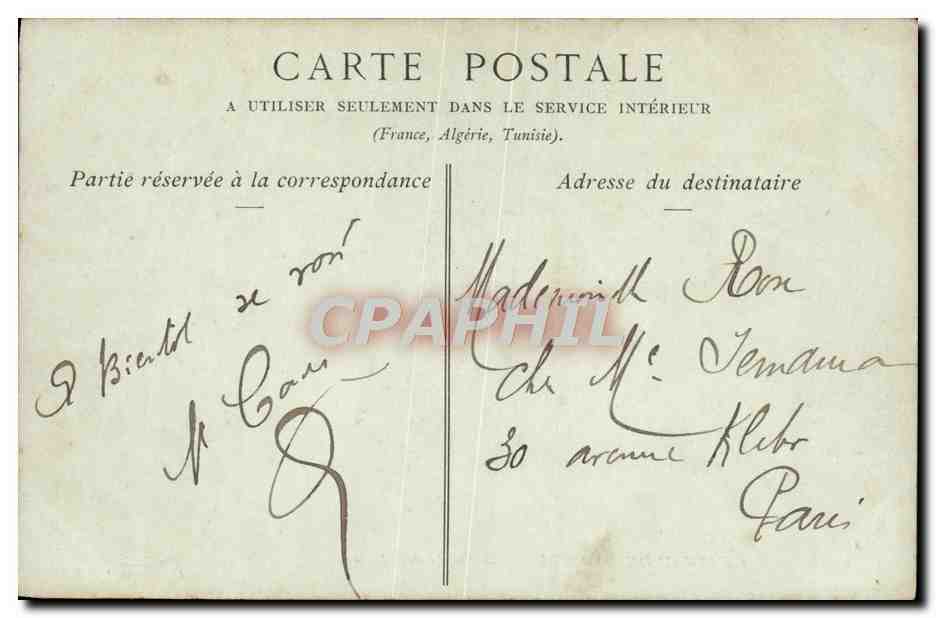 CARTE POSTALE
A UTILISER SEULEMENT DANS LE SERVICE INTÉRIEUR
(France, Algérie, Tunisie).
Partie réservée à la correspondance
A Bientot se
Adresse du destinataire
Mademoiselle Rose
chez Me
30 avenue Kleber
Paris
CPAPHIL